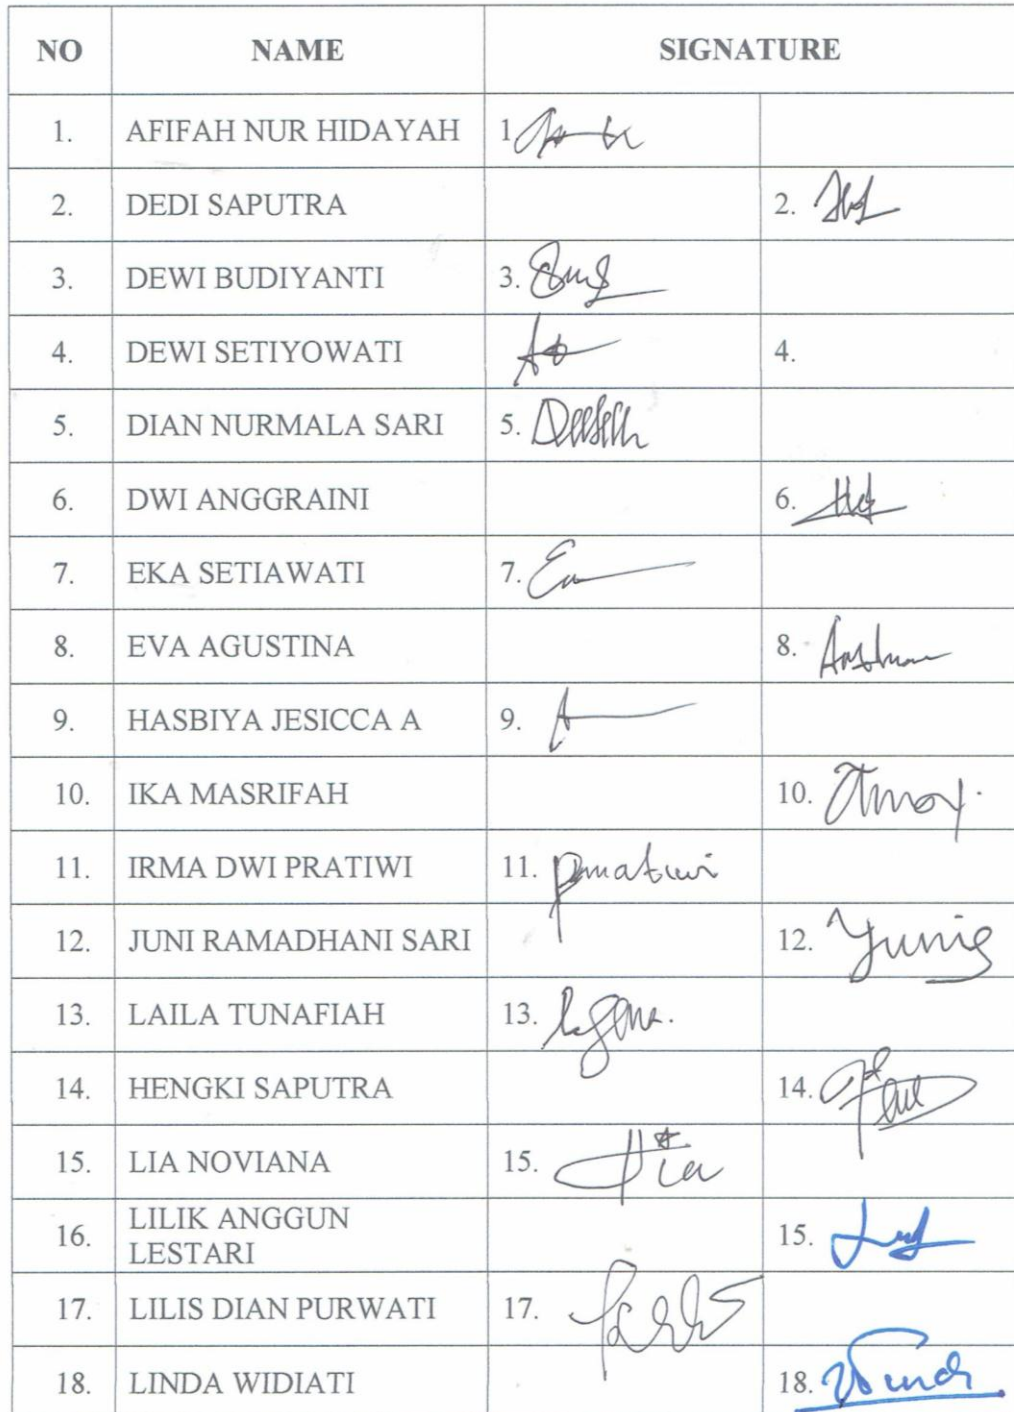 NO NAME SIGNATURE
1. AFIFAH NUR HIDAYAH 1
2. DEDI SAPUTRA 2.
3. DEWI BUDIYANTI 3.
4. DEWI SETIYOWATI 4.
5. DIAN NURMALA SARI 5.
6. DWI ANGGRAINI 6.
7. EKA SETIAWATI 7.
8. EVA AGUSTINA 8.
9. HASBIYA JESICCA A 9.
10. IKA MASRIFAH 10.
11. IRMA DWI PRATIWI 11.
12. JUNI RAMADHANI SARI 12.
13. LAILA TUNAFIAH 13.
14. HENGKI SAPUTRA 14.
15. LIA NOVIANA 15.
16. LILIK ANGGUN 15.
LESTARI
17. LILIS DIAN PURWATI 17.
18. LINDA WIDIATI 18.